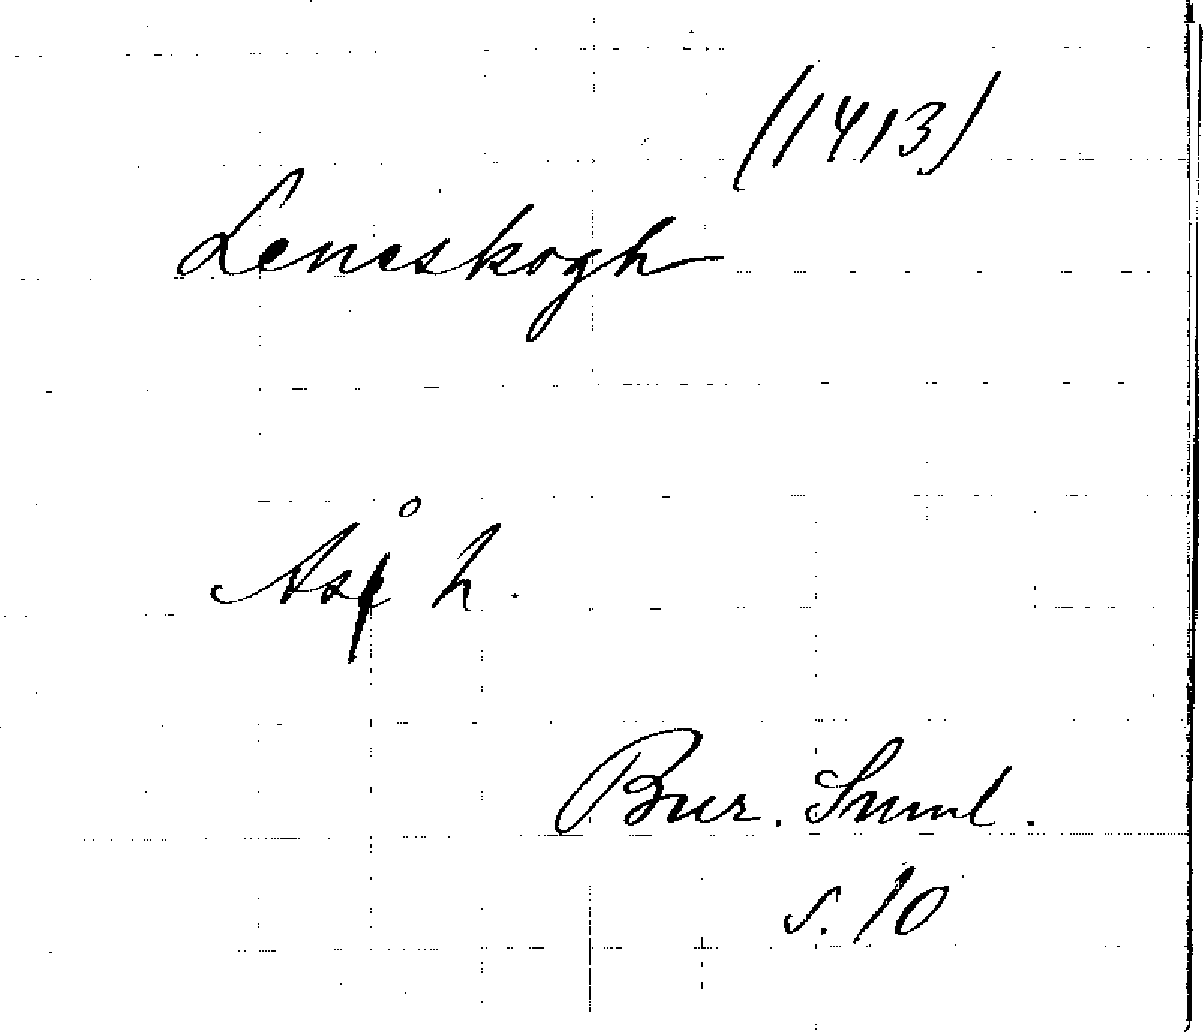 (1413)
Leneskogh
h.
Bur. Suml.
s. 10